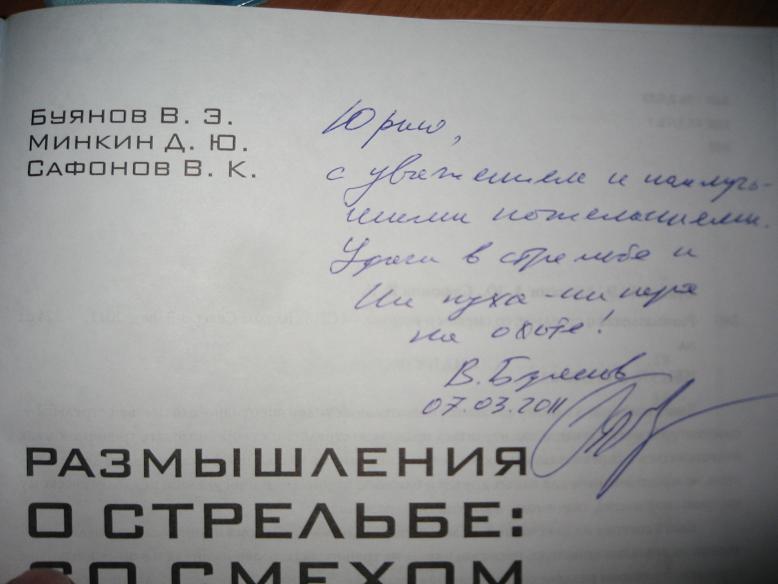 Буянов В. Э.
Минкин Д. Ю.
Сафонов В. К.
Юрию,
с уважением и наилучь-
шими пожеланиями.
Удачи в стрельбе и
Ни пуха-ни пера
на охоте!
В. Буянов
07.03.2011
РАЗМЫШЛЕНИЯ
О СТРЕЛЬБЕ:
СО СМЕХОМ